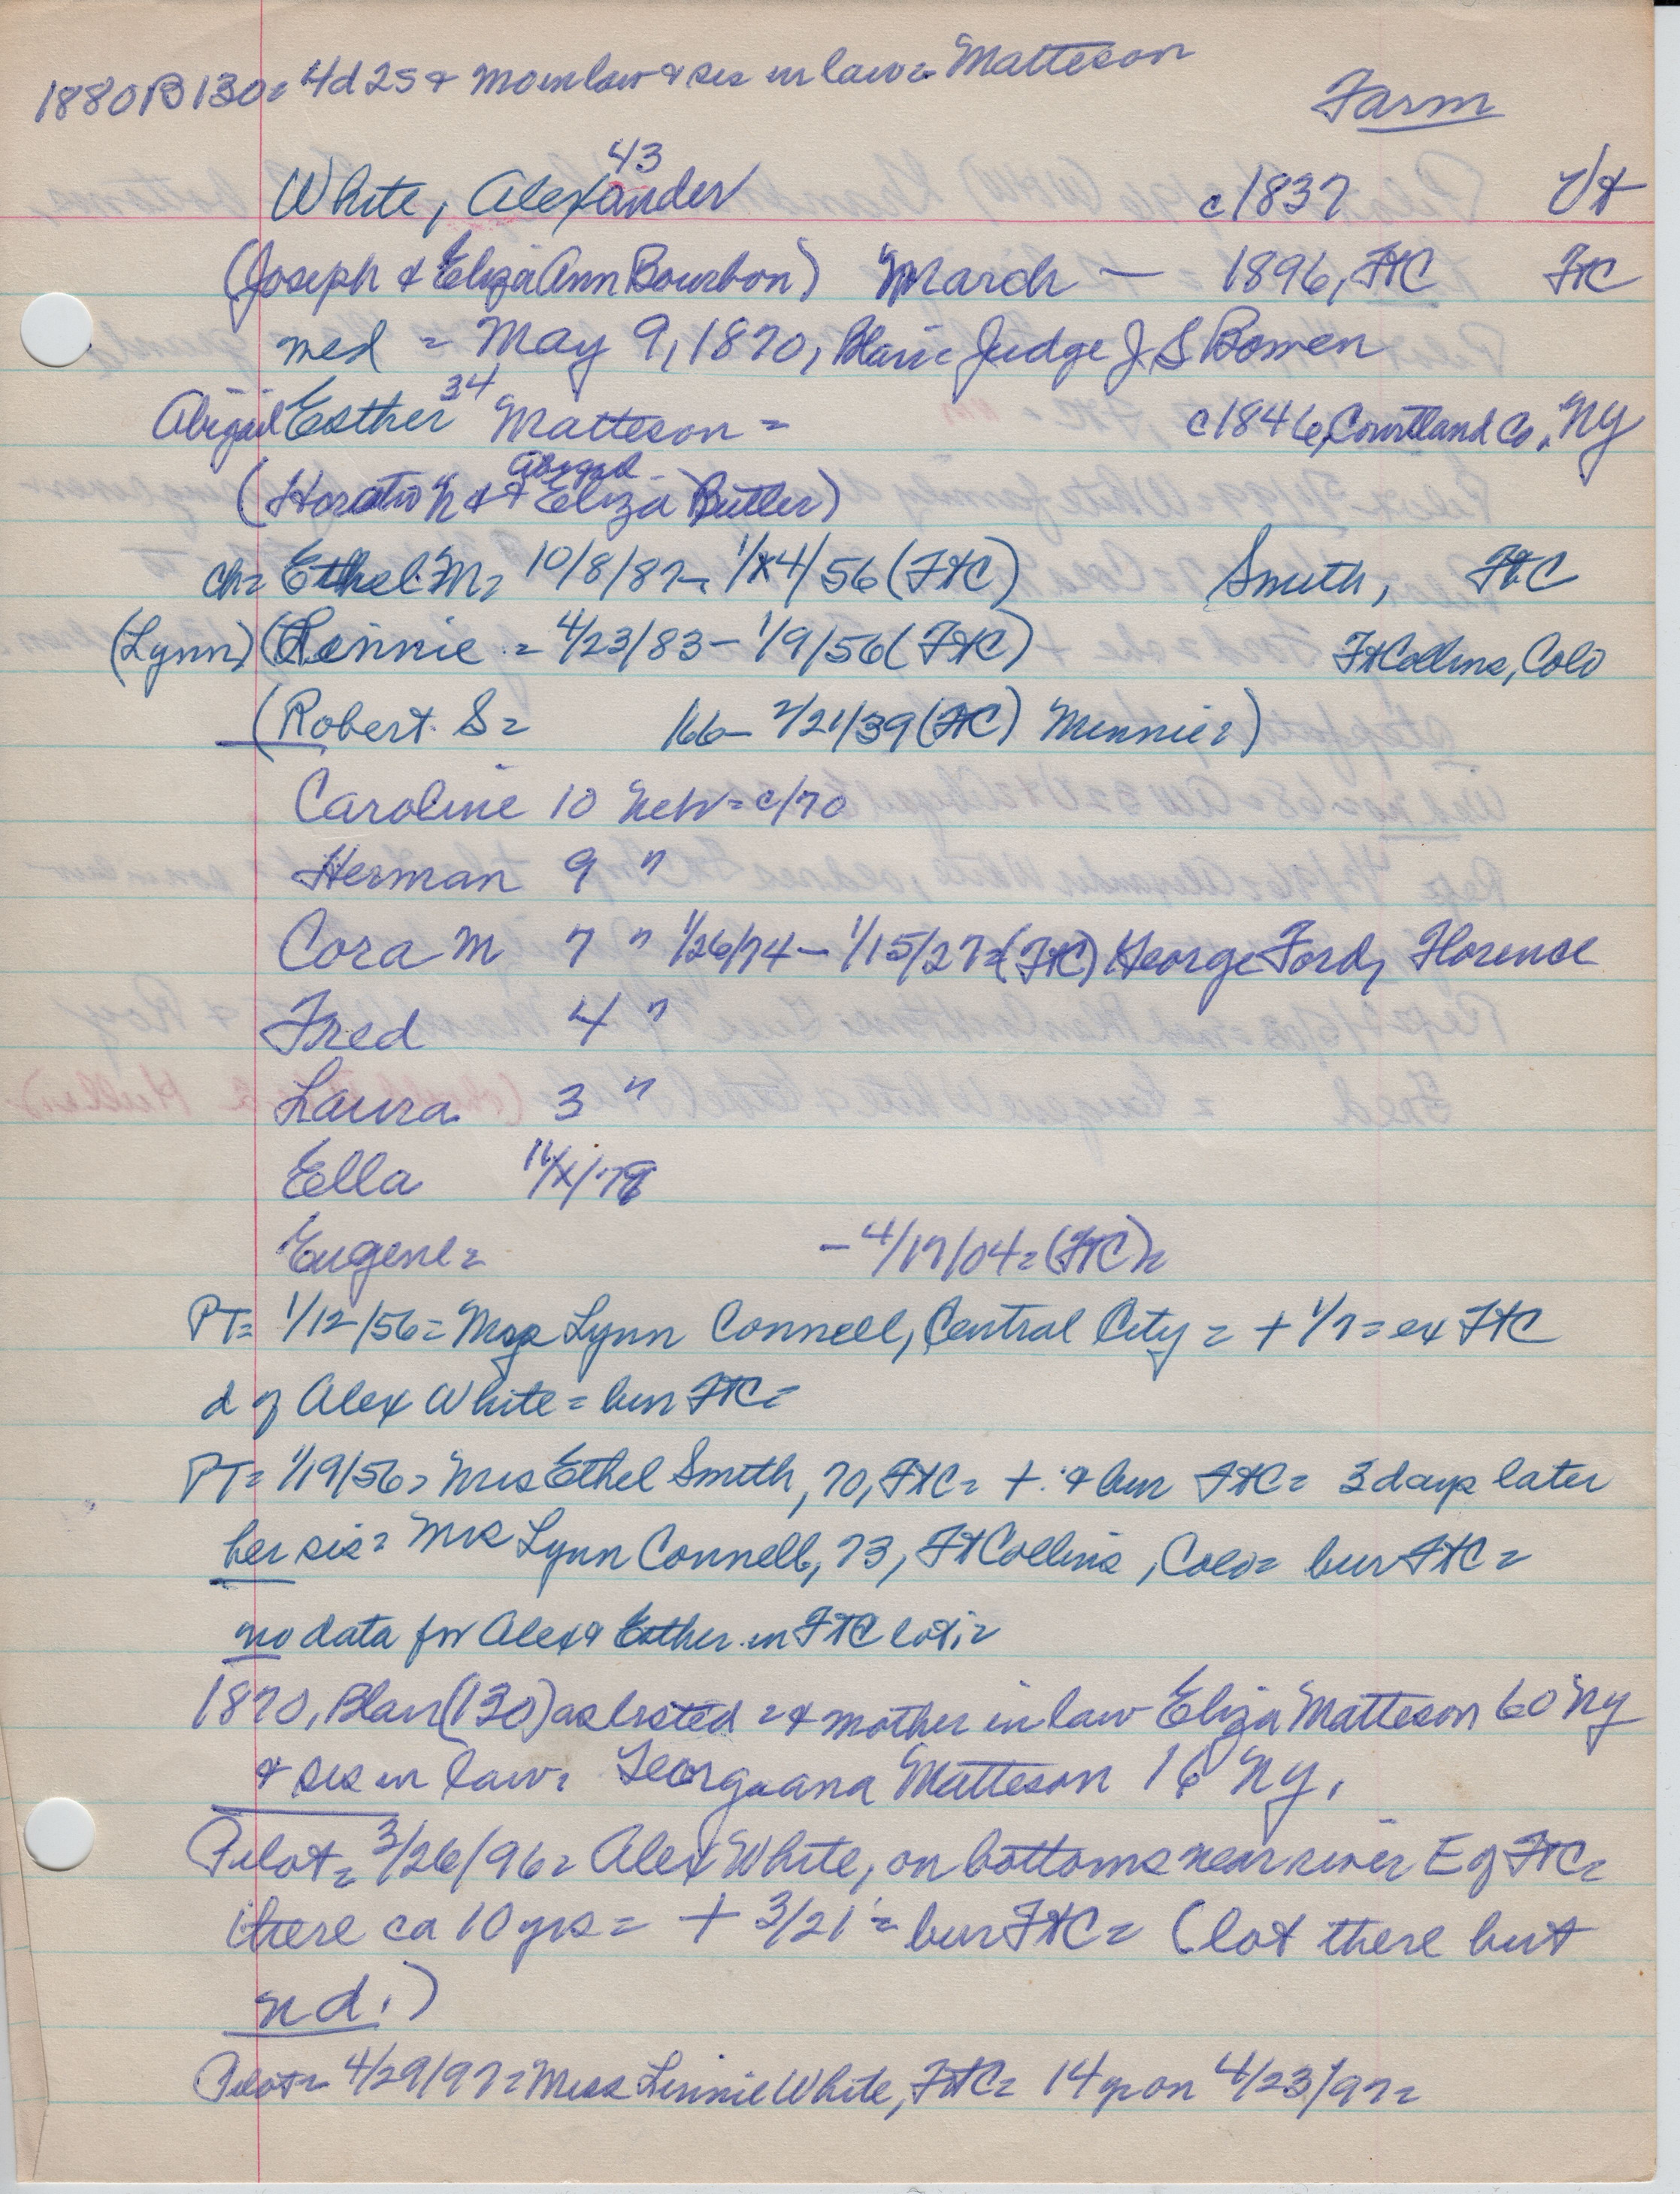 1880B130= 4d 2s & mominlaw & sis in law= Matteson
Farm
43
White, Alexander c1837 Vt
(Joseph & Eliza Ann Bourbon) March — 1896, FtC FtC
med = May 9, 1870, Blair= Judge J S Bowen
34
Abigail Esther Matteson = c1846, Courtland Co, NY
Abigail
(Horatio N & + Eliza Butler)
ch= Ethel M= 10/8/87- 1/14/56 (FtC) Smith, FtC
(Lynn) (Linnie = 4/23/83 - 1/9/56 (FtC) Ft Collins, Colo
(Robert S= /66- 2/21/39 (FtC) Minnie=)
Caroline 10 Neb = c/70
Herman 9 "
Cora M 7 " 1/26/74 - 1/15/27= (FtC) George Ford, Florence
Fred 4 "
Laura 3 "
Ella /79
Eugene= - 4/17/04= (FtC)=
PT= 1/12/56= Mrs Lynn Connell, Central City = + 1/7= ex FtC
d of Alex White = bur FtC=
PT= 1/19/56= Mrs Ethel Smith, 70, FtC= + & bur FtC= 3 days later
her sis= Mrs Lynn Connell, 73, Ft Collins, Colo= bur FtC=
no data for Alex & Esther in FtC lot=
1870, Blair (130) as listed = & mother in law Eliza Matteson 60 NY
& sis in law= Georgeana Matteson 16 NY.
Pilot= 3/26/96= Alex White, on bottoms near river E of FtC=
there ca 10 yrs = + 3/21 = bur FtC= (lot there but
nd.)
Pilot= 4/29/97= Miss Linnie White, FtC= 14 yr on 4/23/97=